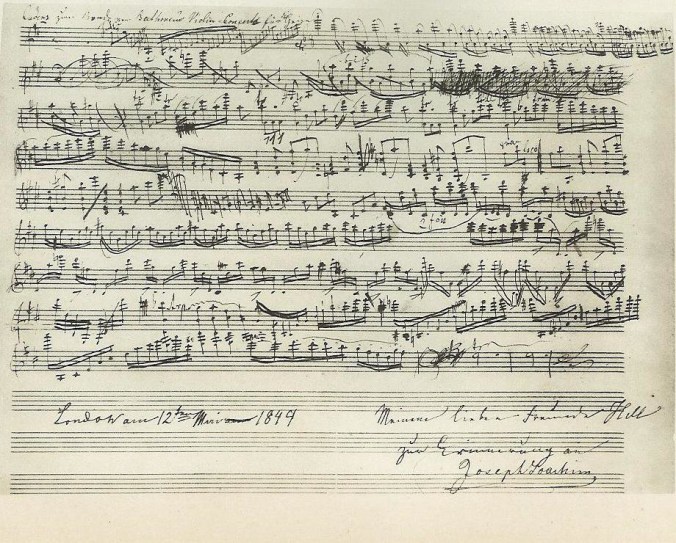 Cadenz zum Rondo von Beethovens Violin-Concerte
London am 12ten Mai 1844
Meinem lieben Freunde Hill
zur Erinnerung an
Joseph Joachim